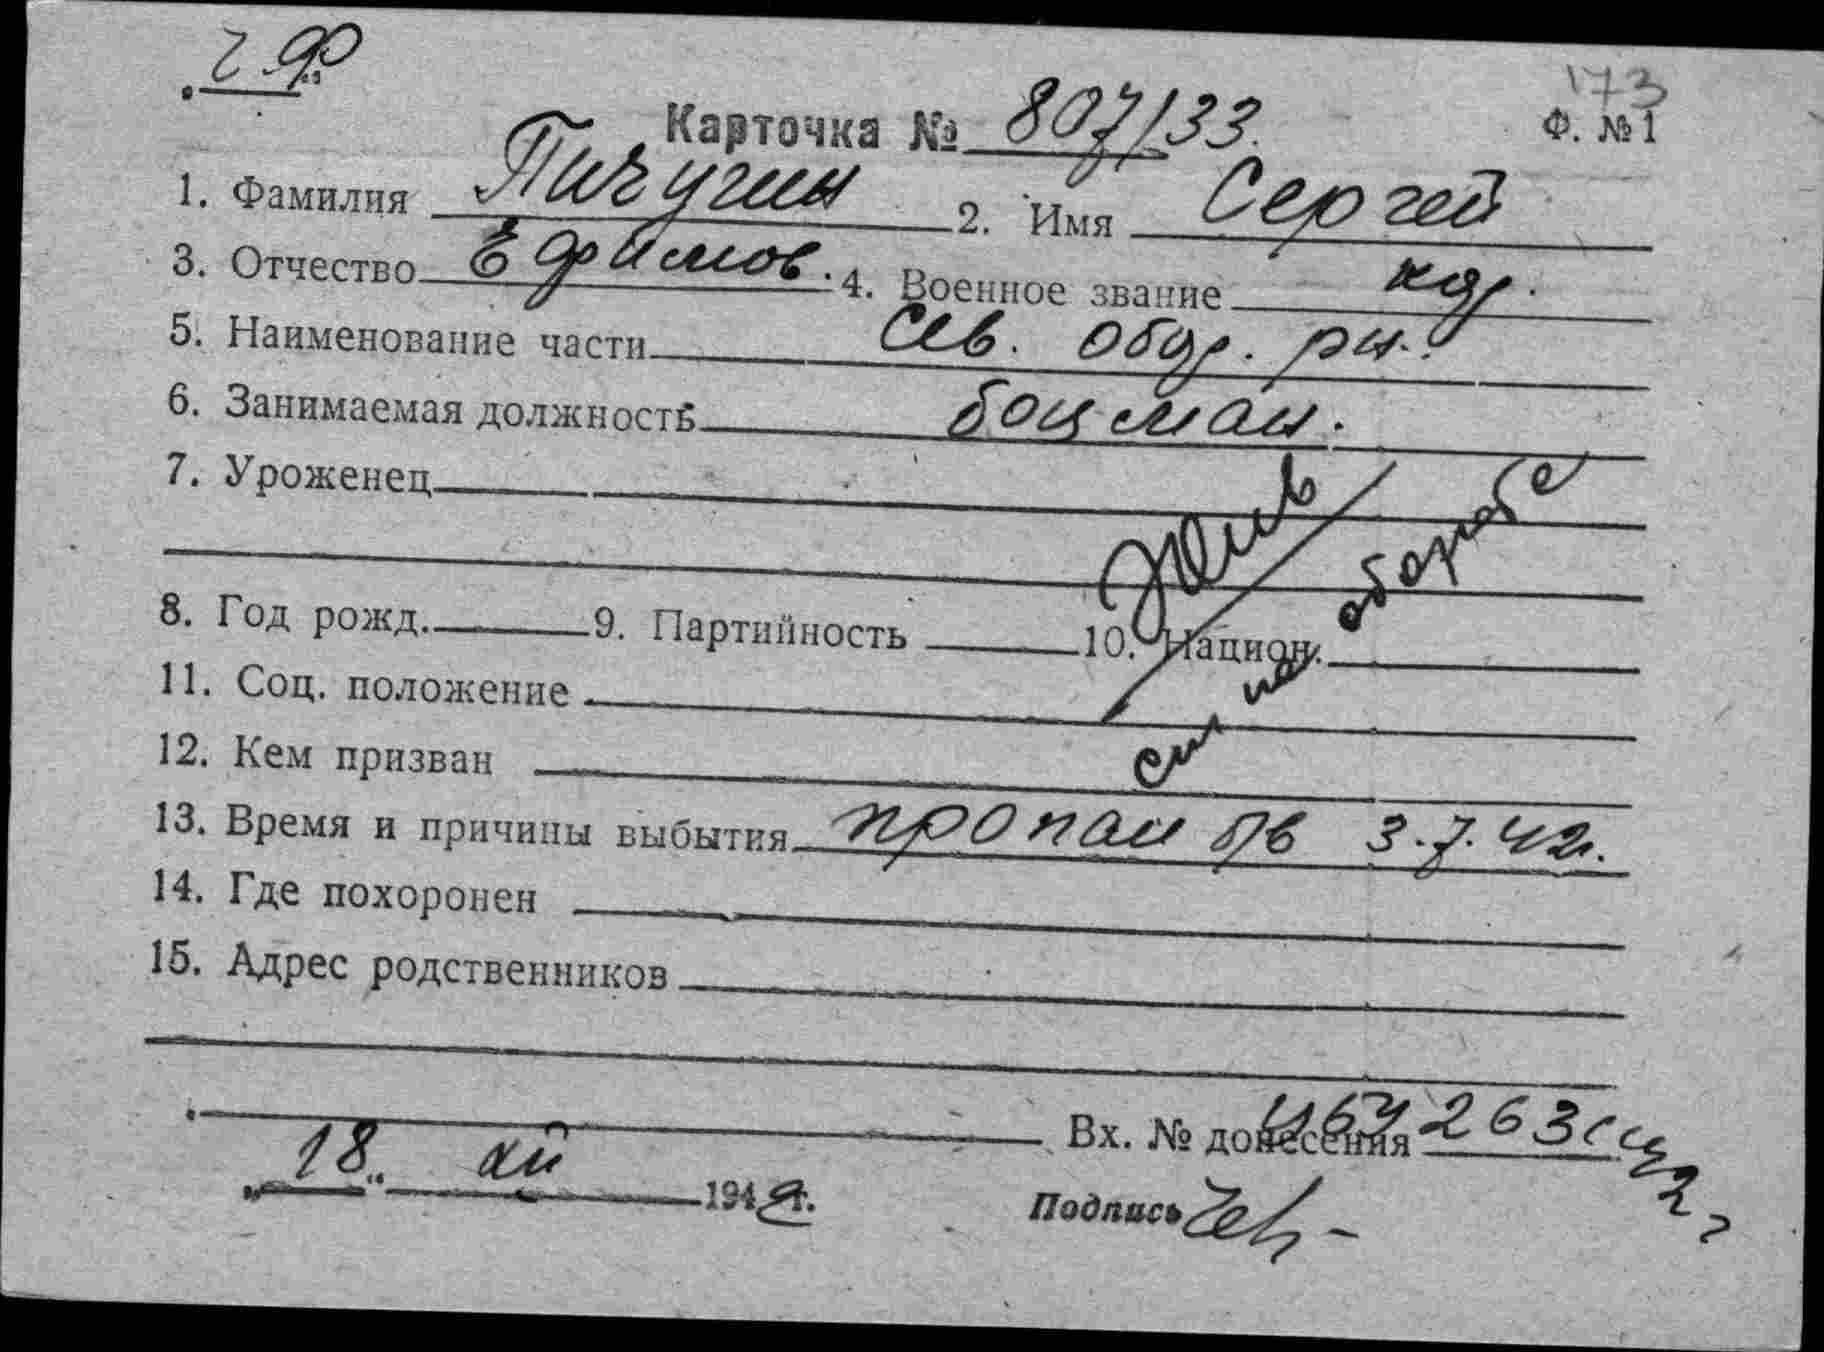 ЧФ
173
Карточка № 807/33.
Ф. № 1
1. Фамилия Пичугин 2. Имя Сергей
3. Отчество Ефимов. 4. Военное звание
5. Наименование части Сев. обор. рн.
6. Занимаемая должность боцман.
7. Уроженец
Жив
8. Год рожд. 9. Партийность 10. Национ.
см на обороте
11. Соц. положение
12. Кем призван
13. Время и причины выбытия пропал б/в 3.7.42г.
14. Где похоронен
15. Адрес родственников
Вх. № донесения 263
„18“ XII 1942г.
Подпись